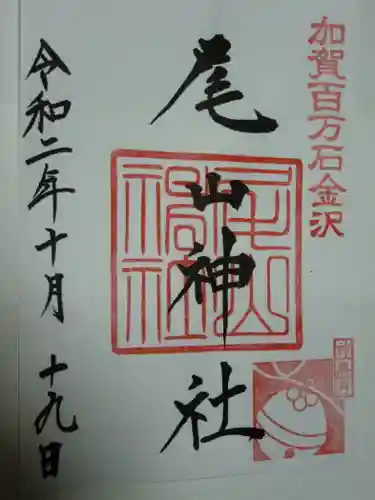 加賀百万石金沢
尾山神社
令和二年十月十九日